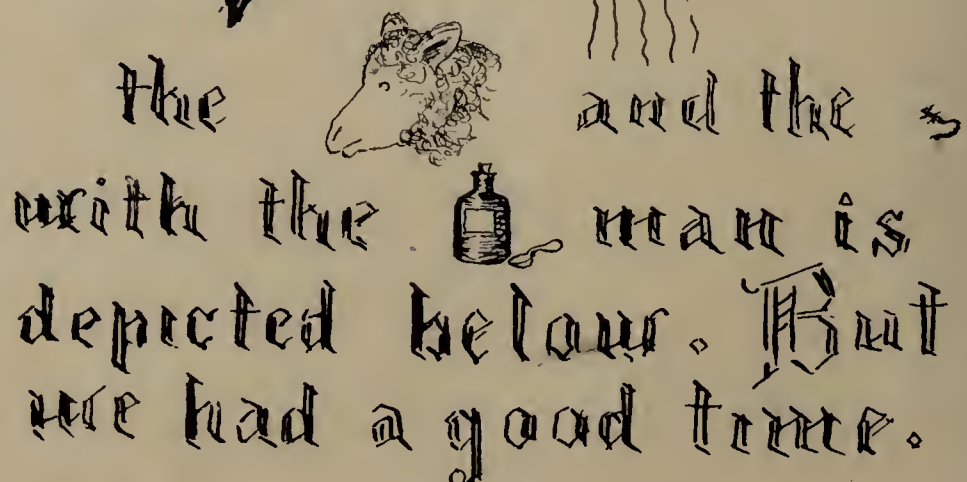 the and the
with the man is
depicted below. But
we had a good time.